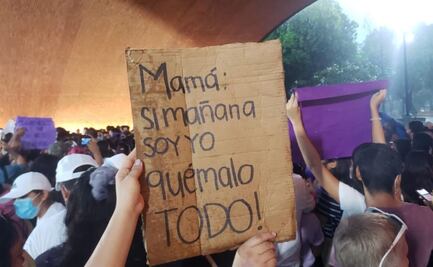 Mamá:
si mañana
soy yo
quémalo
TODO!